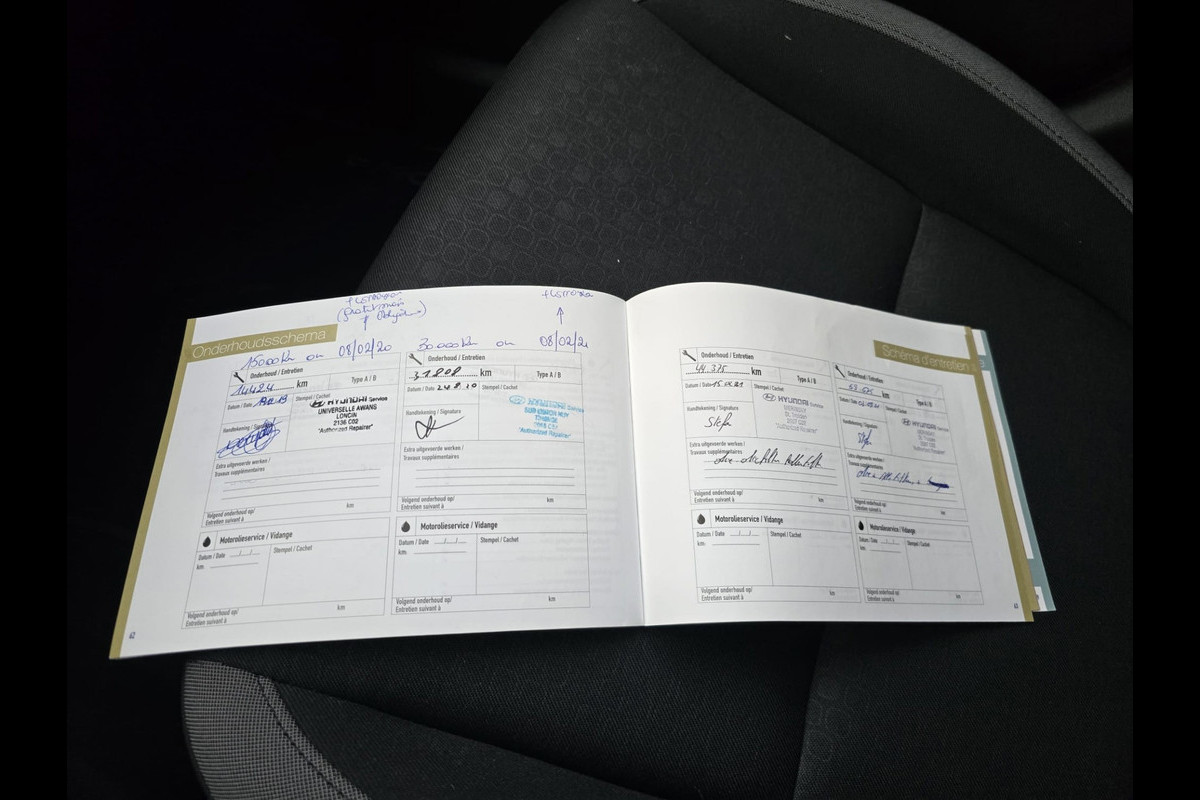 08/02/20
08/02/21
Onderhoudsschema
15000 km on
30.000 km on
Onderhoud / Entretien
14424 km Type A / B
Datum / Date
Stempel / Cachet
HYUNDAI Service
UNIVERSELLE AWANS
LONCIN
2136 C02
"Authorized Repairer"
Handtekening / Signature
Extra uitgevoerde werken /
Travaux supplémentaires
Volgend onderhoud op/
Entretien suivant à km
Motorolieservice / Vidange
Datum / Date
Stempel / Cachet
km:
Volgend onderhoud op/
Entretien suivant à km
62
Onderhoud / Entretien
31808 km Type A / B
Datum / Date 24.8.20 Stempel / Cachet
Handtekening / Signature
"Authorized Repairer"
Extra uitgevoerde werken /
Travaux supplémentaires
Volgend onderhoud op/
Entretien suivant à km
Motorolieservice / Vidange
Datum / Date
Stempel / Cachet
km:
Volgend onderhoud op/
Entretien suivant à km
Schéma d'entretien
Onderhoud / Entretien
44.375 km Type A / B
Datum / Date
Stempel / Cachet
HYUNDAI Service
Handtekening / Signature
Extra uitgevoerde werken /
Travaux supplémentaires
Volgend onderhoud op/
Entretien suivant à km
Motorolieservice / Vidange
Datum / Date
Stempel / Cachet
km:
Volgend onderhoud op/
Entretien suivant à km
Onderhoud / Entretien
km Type A / B
Datum / Date
Stempel / Cachet
HYUNDAI
Handtekening / Signature
Extra uitgevoerde werken /
Travaux supplémentaires
Volgend onderhoud op/
Entretien suivant à km
Motorolieservice / Vidange
Datum / Date
Stempel / Cachet
km:
Volgend onderhoud op/
Entretien suivant à km
63